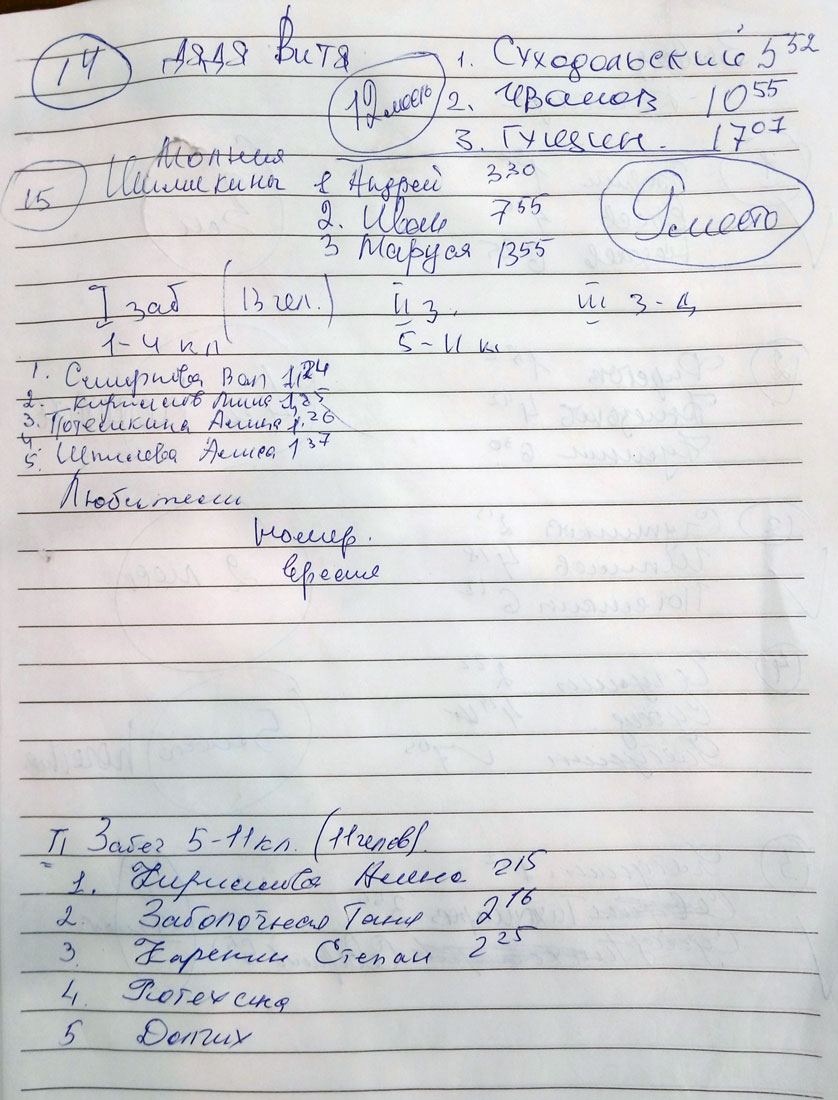 14 ДЯДЯ Витя
12 место
1. Суходольский 5 52
2. Иванов 10 55
3. Гущин. 17 07
15 Молния
Шишикины 1 Андрей 3 30
2. Иван 7 55
3 Маруся 13 55
9 место
I заб (13 чел.) II з. III з-д
1-4 кл 5-11 кл
1. Смирнова Вал 1,24
2. Кириллов Миша 1,25
3. Потешкина Алина 1,26
4.
5. Шпилева Алиса 1 37
Любители
Номер.
время
II Забег 5-11 кл. (11 челов).
1. Кириллова Алена 2 15
2 Заболотная Таня 2 16
3 Карекин Степан 2 25
4. Потехина
5 Долгих